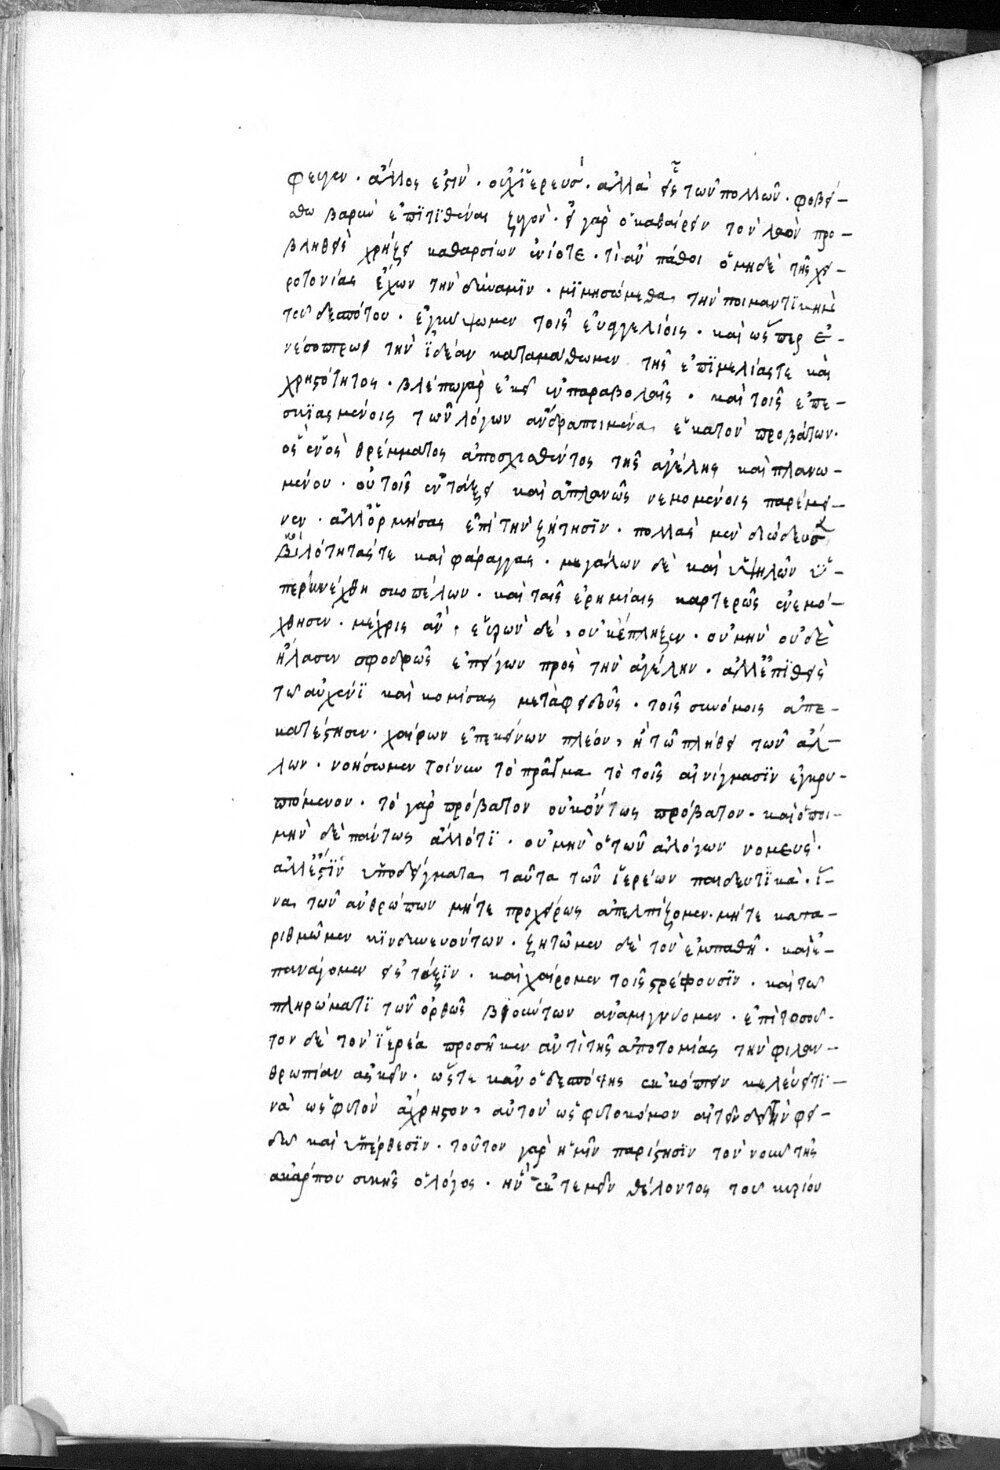 φειεν · ἄλλος ἐστὶν · οὐχ ἱερεὺς · ἀλλὰ εἷς τῶν πολλῶν · φοβεί-
σθω βαρὺν ἐπιτιθέναι ζυγὸν · εἰ γὰρ ὁ καθαίρειν τὸν λαὸν προ-
βληθεὶς χρήζει καθαρσίων ἐνίοτε · τί ἂν πάθοι ὁ μηδὲ τῆς χει-
ροτονίας ἔχων τὴν δύναμιν · μιμησώμεθα τὴν ποιμαντικὴν
τοῦ δεσπότου · ἐγκύψωμεν τοῖς εὐαγγελίοις · καὶ ὥσπερ ἐ-
νεσόπτρω τὴν ἰδέαν καταμάθωμεν τῆς ἐπιμελίας τε καὶ
χρηστότητος · βλέπω γὰρ ἐκεῖ ἐν παραβολαῖς · καὶ τοῖς ἐπε-
σκιασμένοις τῶν λόγων ἄνδρα ποιμένα ἑκατὸν προβάτων·
ὃς ἑνὸς θρέμματος ἀποσχισθέντος τῆς ἀγέλης καὶ πλανω-
μένου · οὐ τοῖς ἐν τάξει καὶ ἀπλανῶς νεμομένοις παρέμει-
νεν · ἀλλ' ὁρμήσας ἐπὶ τὴν ζήτησιν · πολλὰς μὲν διώδευσε
κοιλότητάς τε καὶ φάραγγας · μεγάλων δὲ καὶ ὑψηλῶν ὑ-
περηνέχθη σκοπέλων · καὶ ταῖς ἐρημίαις καρτερῶς ἐνεμό-
χθησεν · μέχρις ἂν, εὑρὼν δέ, οὐκ ἔπληξεν · οὐ μὴν οὐδὲ
ἤλασεν σφοδρῶς ἐπείγων πρὸς τὴν ἀγέλην · ἀλλ' ἐπιθεὶς
τῶ αὐχένι καὶ κομίσας μετὰ φειδοῦς · τοῖς συννόμοις ἀπε-
κατέστησεν · χαίρων ἐπ' ἐκείνων πλέον, ἢ τῶ πλήθει τῶν ἄλ-
λων · νοήσωμεν τοίνυν τὸ πρᾶγμα τὸ τοῖς αἰνίγμασιν ἐγκρυ-
πτόμενον · τὸ γὰρ πρόβατον οὐκ ὄντως πρόβατον · καὶ ὁ ποι-
μὴν δὲ πάντως ἄλλό τι · οὐ μὴν ὁ τῶν ἀλόγων νομεὺς ·
ἀλλ' ἐστὶν ὑποδείγματα ταῦτα τῶν ἱερέων παιδευτικὰ · ἵ-
να τῶν ἀνθρώπων μήτε προχείρως ἀπελπίζομεν · μήτε κατα-
ριθμῶμεν κινδυνευόντων · ζητῶμεν δὲ τὸν ἐμπαθῆ · καὶ ἐ-
πανάγομεν εἰς τάξιν · καὶ χαίρομεν τοῖς στρέφουσιν · καὶ τῶ
πληρώματι τῶν ὀρθῶς βιούντων ἀναμιγνύομεν · ἐπὶ τοσοῦ-
τον δὲ τὸν ἱερέα προσῆκεν ἀντὶ τῆς ἀποτομίας τὴν φιλαν-
θρωπίαν ἀσκεῖν · ὥστε κἂν ὁ δεσπότης ἐκκόπτειν κελεύει τι-
νὰ ὡς φυτὸν ἄχρηστον, αὐτὸν ὡς φυτοκόμον αἰτεῖν δεῖ τὴν φει-
δὼ καὶ ὑπέρθεσιν · τοῦτον γὰρ ἡμῖν παρίστησιν τὸν νοῦν τῆς
ἀκάρπου συκῆς ὁ λόγος · ἣν ἐκτεμεῖν θέλοντος τοῦ κυρίου